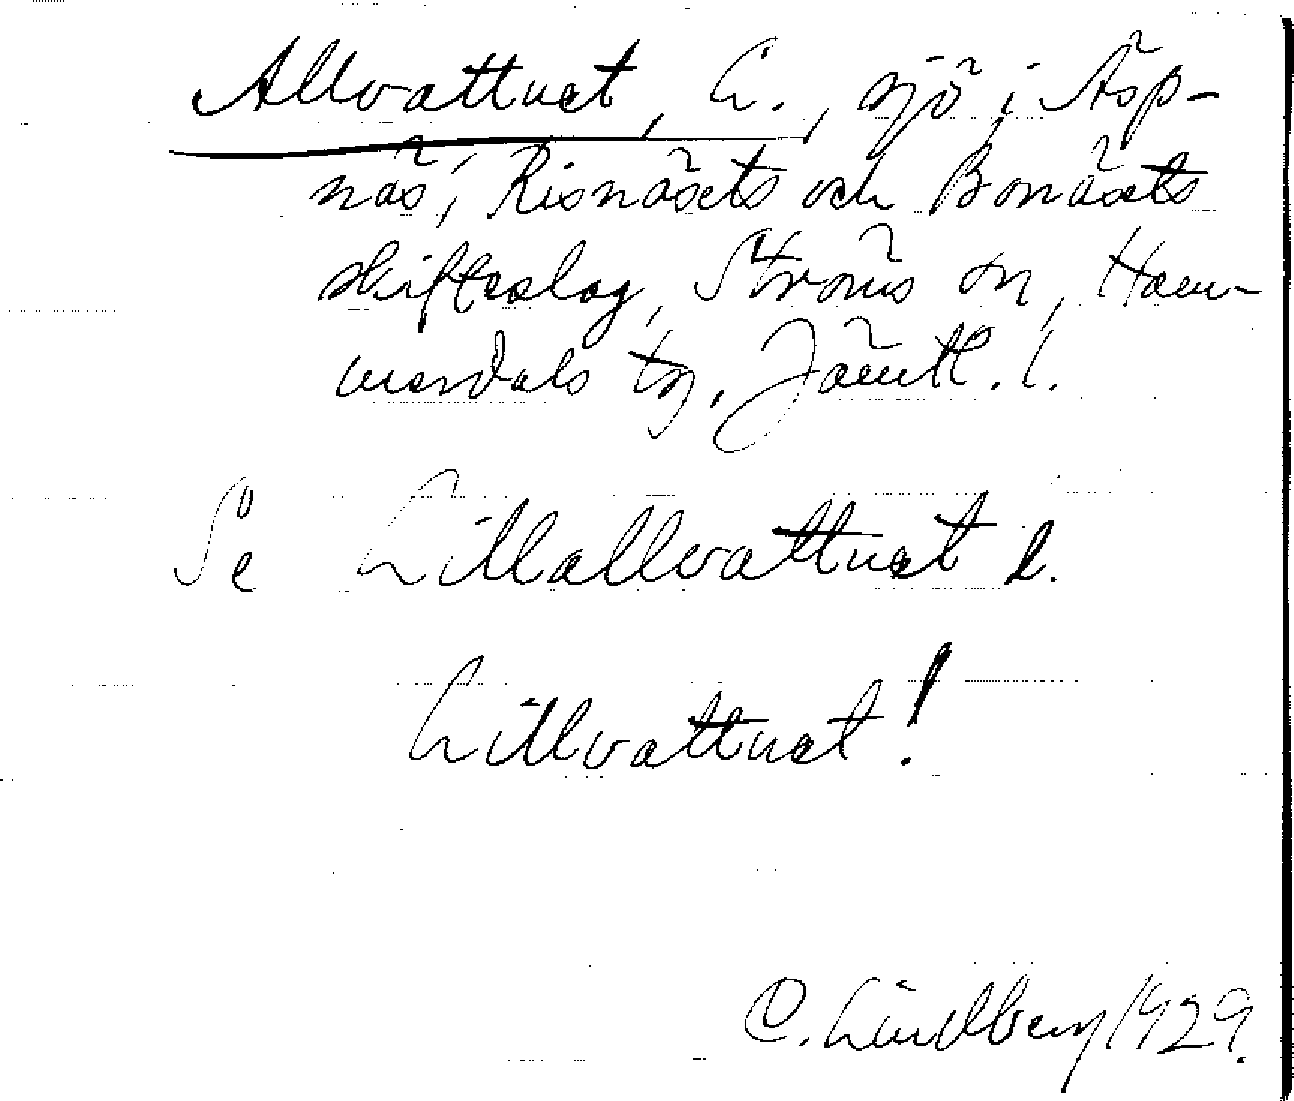 Allvattnet, L., sjö i Äsp-
näs, Risnäsets och Bonäsets
skifteslag, Ströms sn, Ham-
merdals tg, Jämtl. l.
Se Lillallvattnet l.
Lillvattnet!
C. Lindberg 1929.